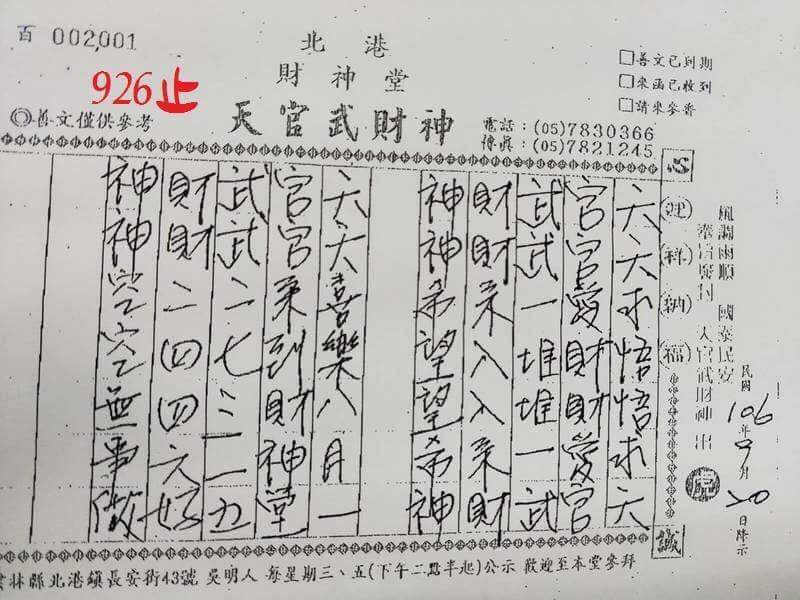 百 002,001
926止
◎善文僅供參考
北港
財神堂
天官武財神
□善文已到期
□來函已收到
□請來參香
電話:(05)7830366
傳真:(05)7821245
心
迎祥納福
誠
風調雨順 國泰民安
天官武財神 出
民國106年9月20日降示
天天求悟悟求天
官官愛財財愛官
武武一堆堆一武
財財來入入來財
神神希望望希神
天天喜樂八月一
官官來到財神堂
武武二七三二五
財財二四四六好
神神空空無事做
雲林縣北港鎮長安街43號 吳明人 每星期三、五(下午二點半起)公示 歡迎至本堂參拜